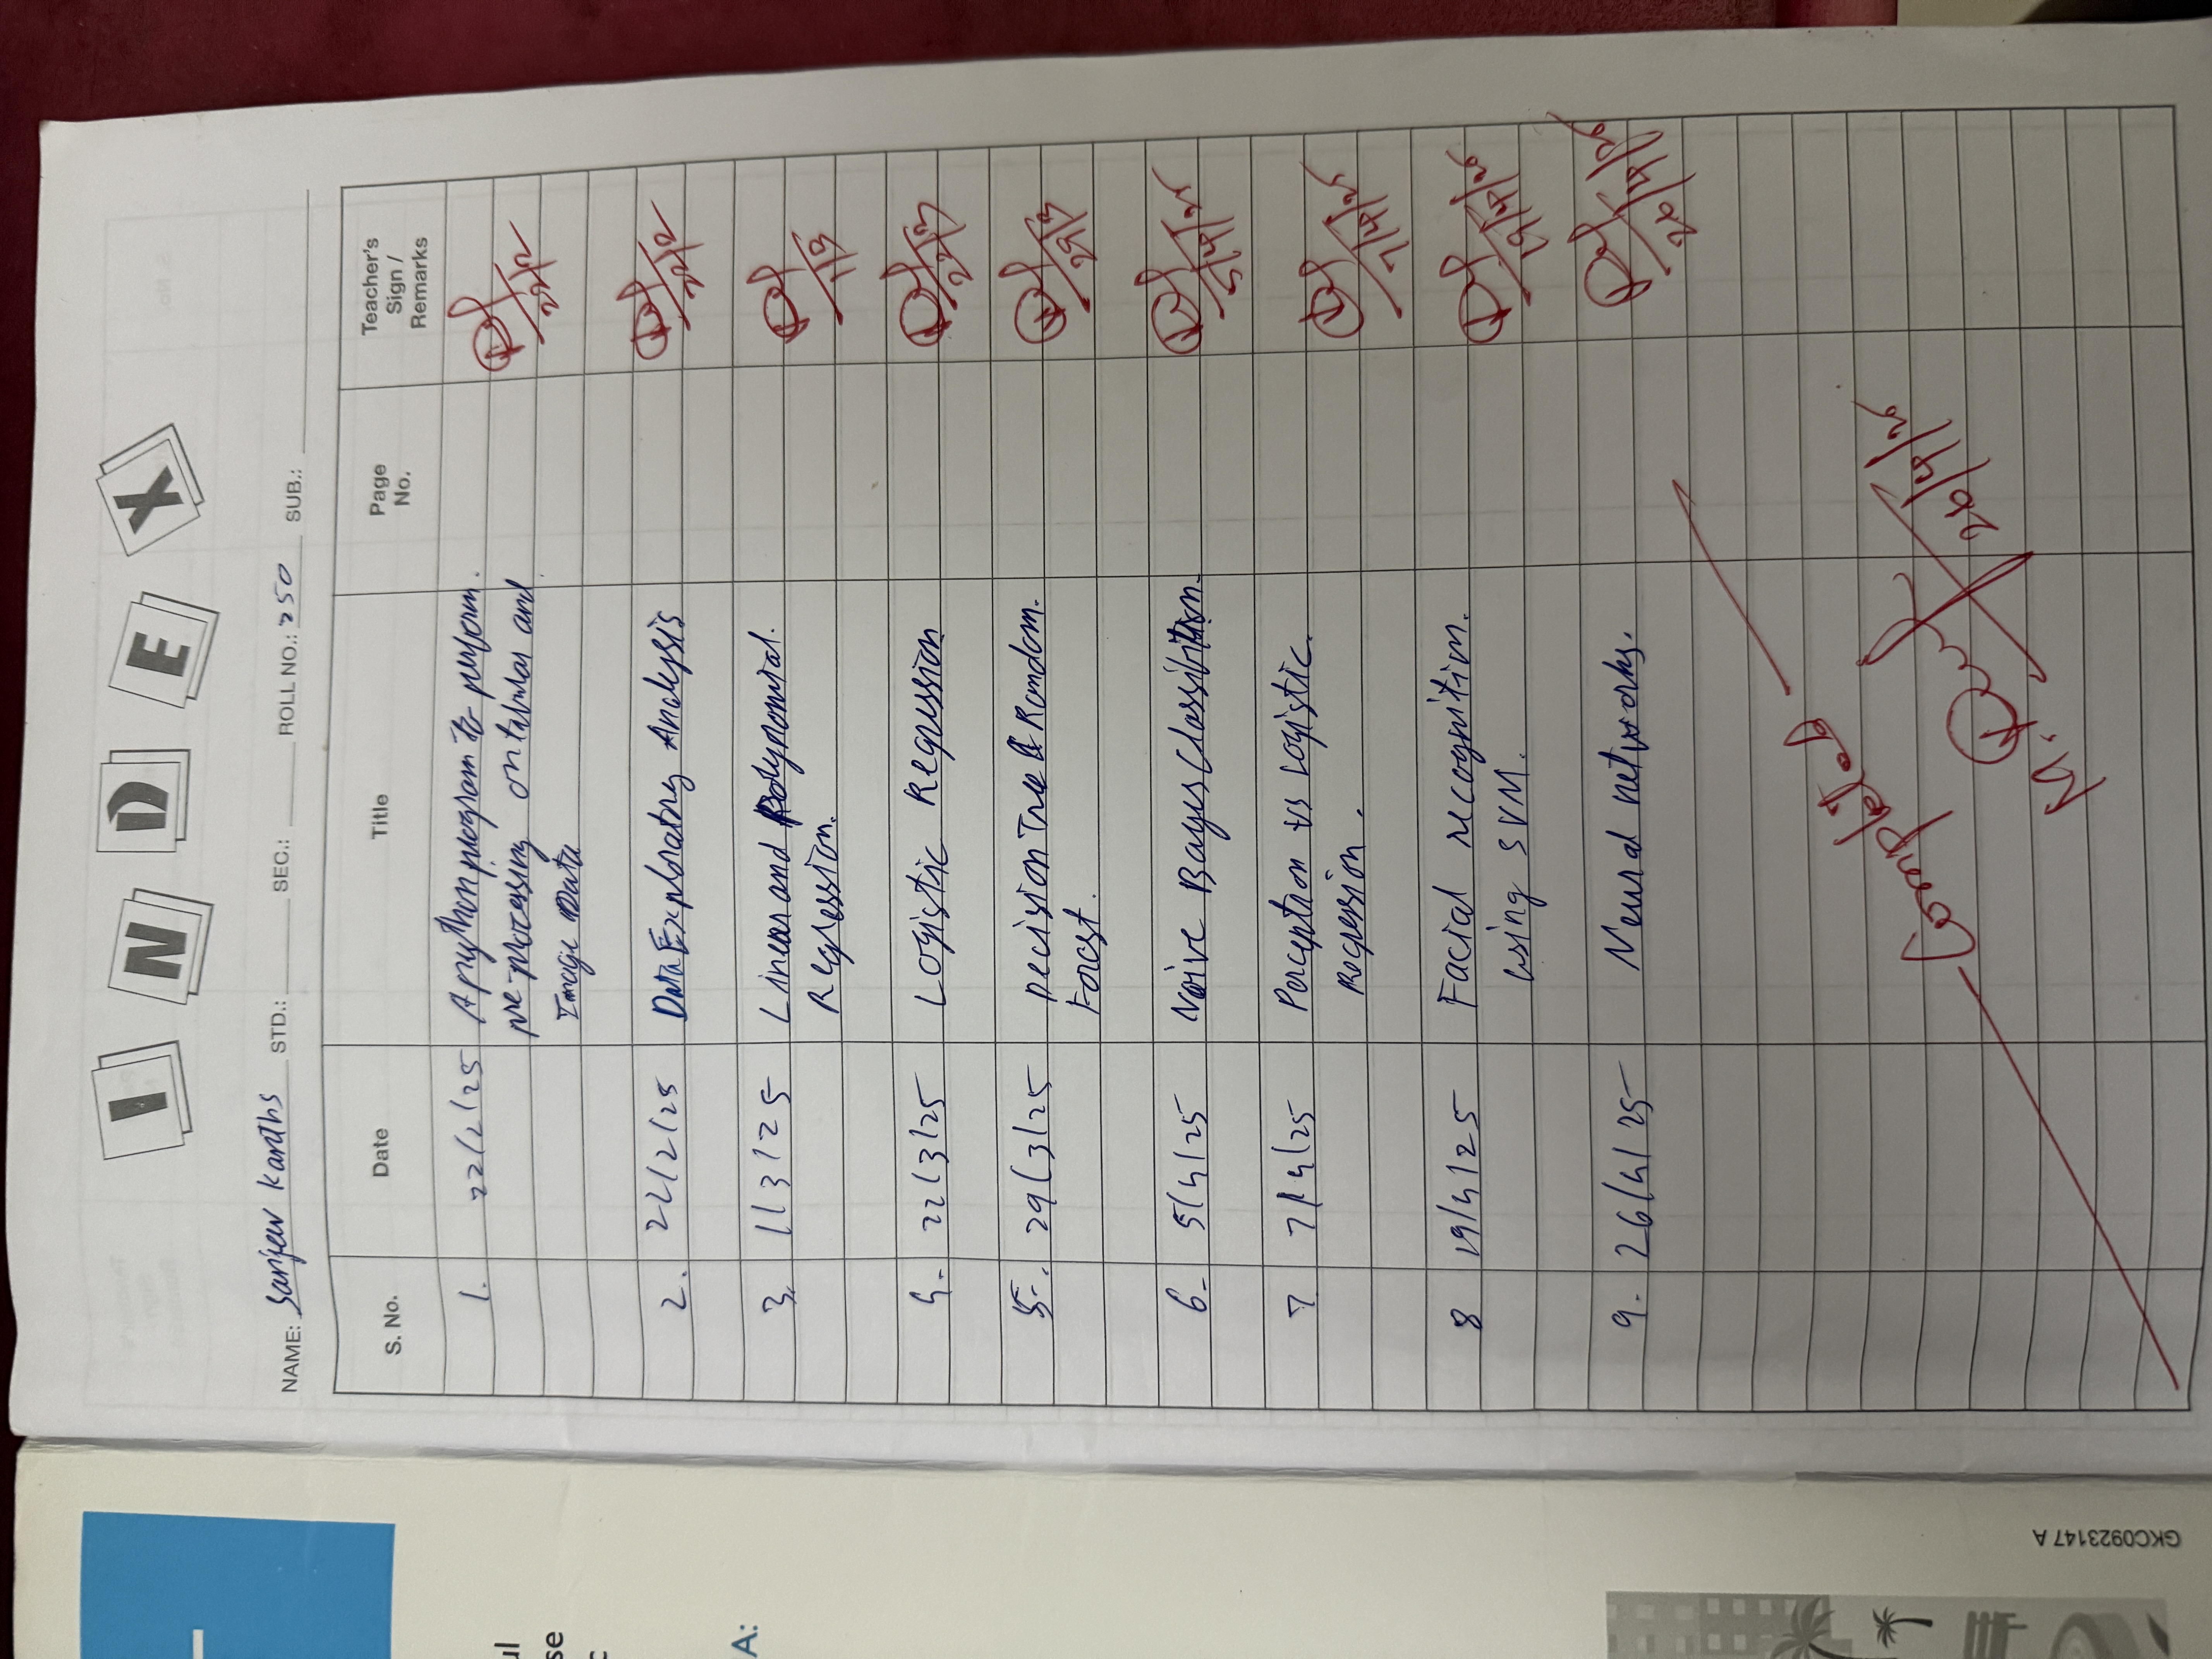 INDEX
NAME: Sanjeev Kanth S STD.: SEC.: ROLL NO.: 250 SUB.:
S. No. Date Title Page No. Teacher's Sign / Remarks
1. 22/2/25 A python program to perform.
pre-processing on tabular and
Image Data
22/2
2. 22/2/25 Data Exploratory Analysis
22/2
3. 1/3/25 Linear and Polynomial.
Regression.
1/3
4. 22/3/25 Logistic Regression
22/3
5. 29/3/25 Decision Tree & Random.
Forest.
29/3
6. 5/4/25 Naive Bayes
5/4/25
7. 7/4/25 Perception vs Logistic.
Regression.
7/4/25
8 19/4/25 Facial recognition.
using SVM.
19/4/25
9. 26/4/25 Neural networks.
26/4/25
Completed
M.
26/4/25
ul
se
c
A:
GKC0923147 A